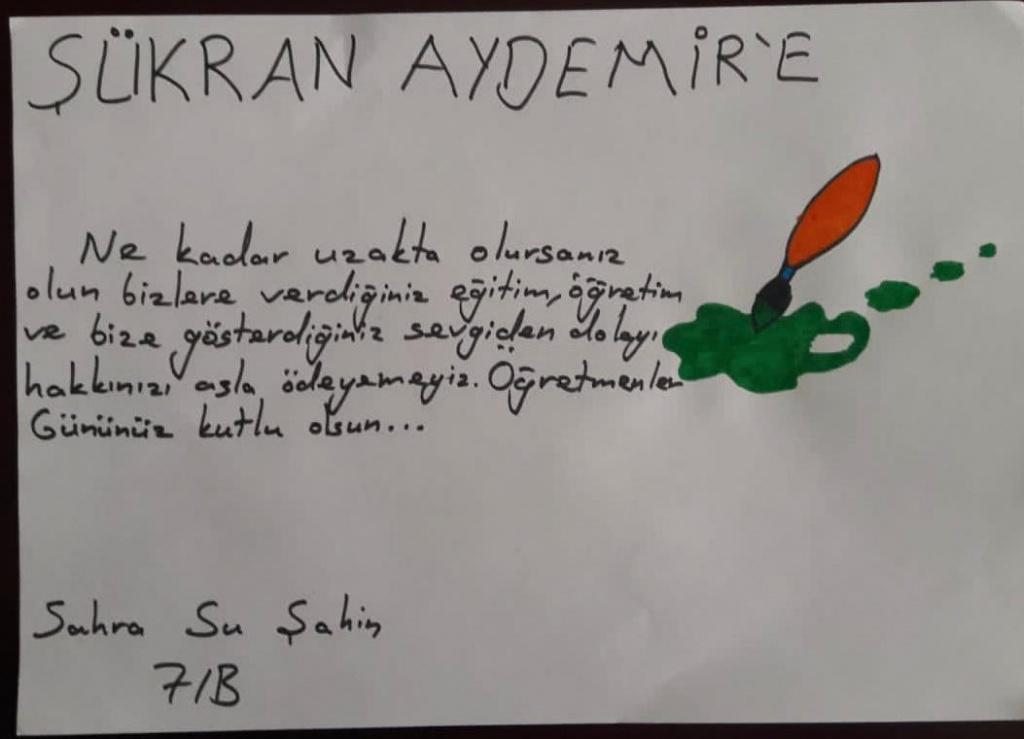 ŞÜKRAN AYDEMİR'E
Ne kadar uzakta olursanız
olun bizlere verdiğiniz eğitim, öğretim
ve bize gösterdiğiniz sevgiden dolayı
hakkınızı asla ödeyemeyiz. Öğretmenler
Gününüz kutlu olsun...
Sahra Su Şahin
7/B